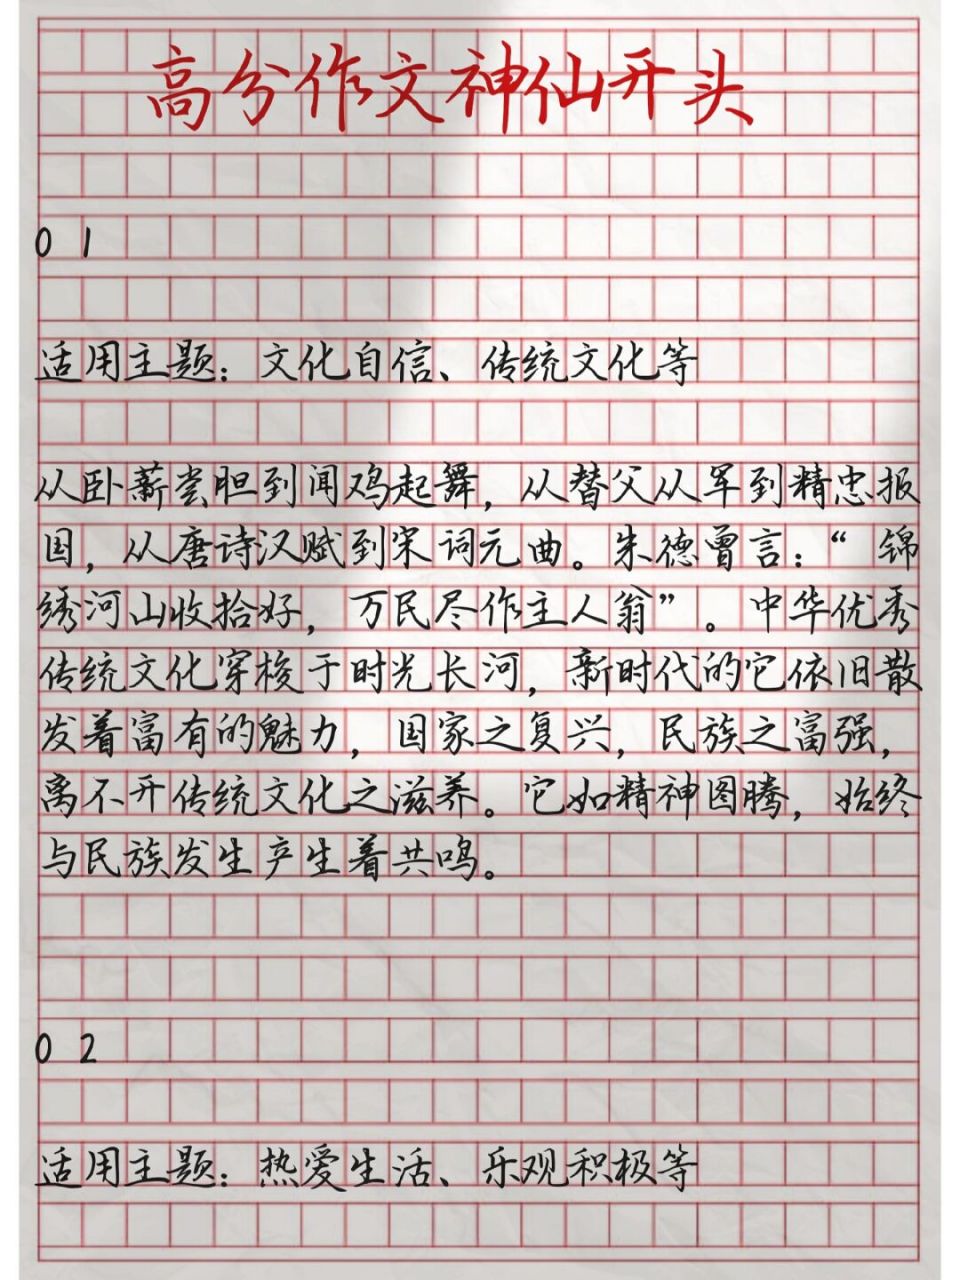 高分作文神仙开头
01
适用主题：文化自信、传统文化等
从卧薪尝胆到闻鸡起舞，从替父从军到精忠报
国，从唐诗汉赋到宋词元曲。朱德曾言：“锦
绣河山收拾好，万民尽作主人翁”。中华优秀
传统文化穿梭于时光长河，新时代的它依旧散
发着富有的魅力，国家之复兴，民族之富强，
离不开传统文化之滋养。它如精神图腾，始终
与民族发生产生着共鸣。
02
适用主题：热爱生活、乐观积极等